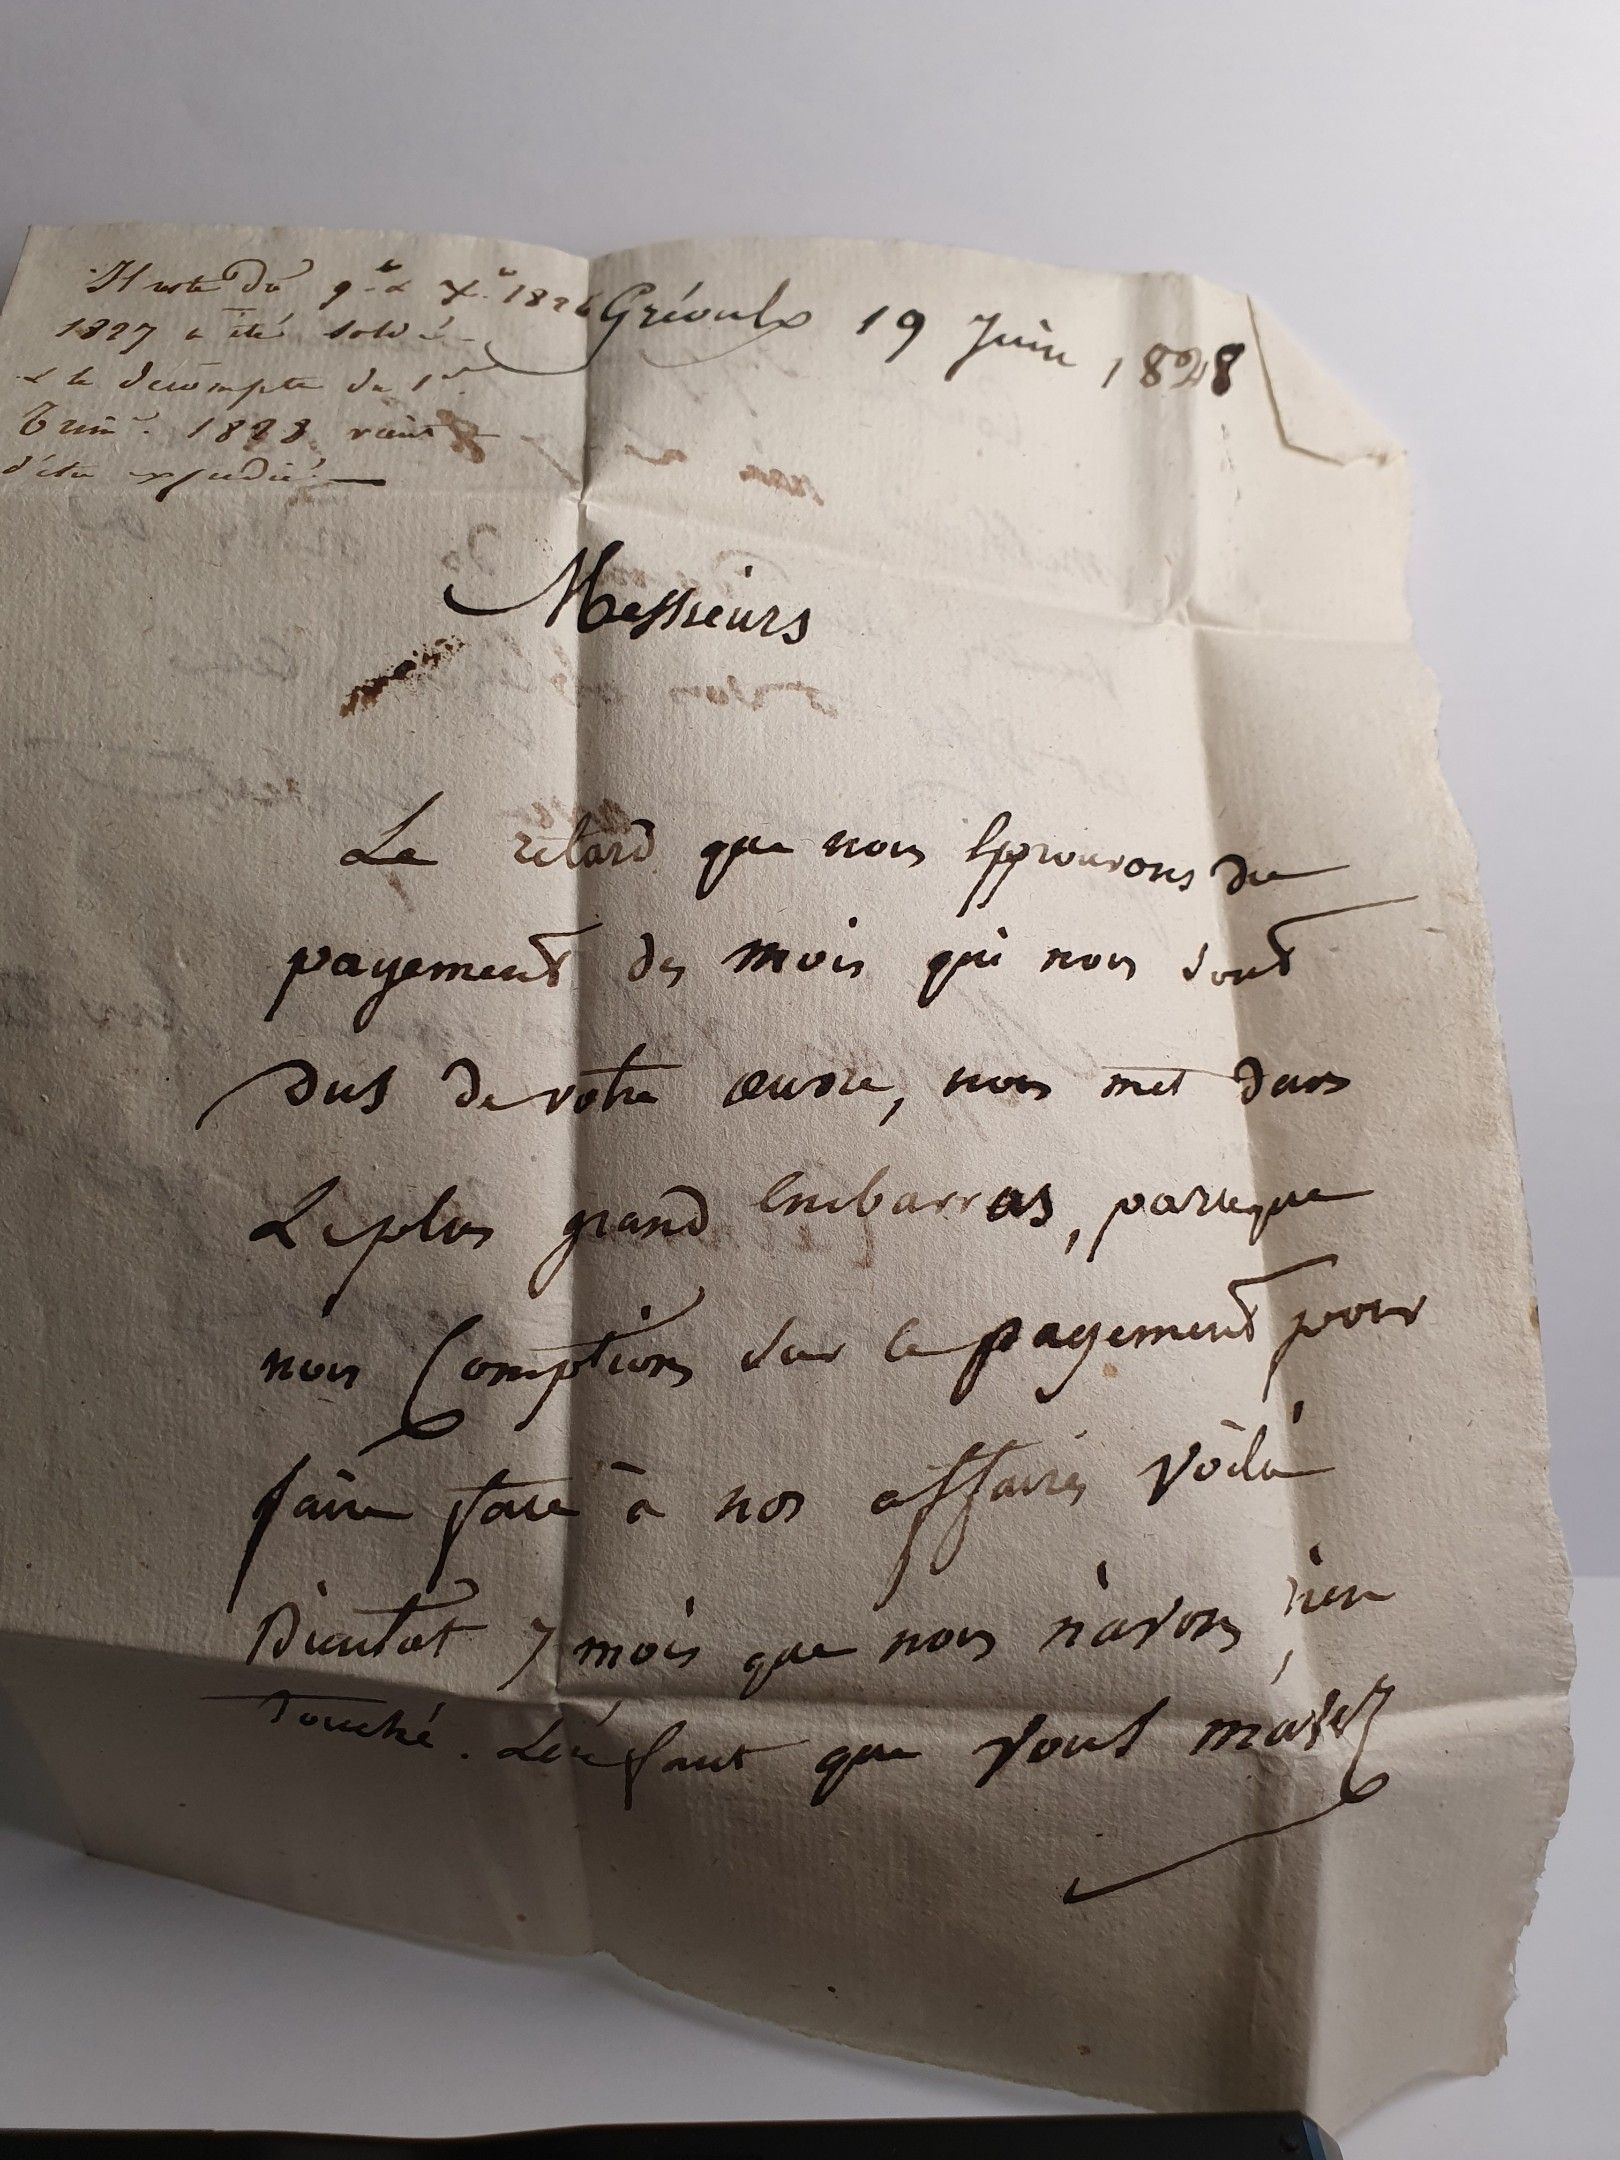 Il reste dû 9.bre & X.bre 1826
1827 a été soldé
& le décompte du 1er
Trim.e 1828 vient
d'être expédié
Gréoulx 19 Juin 1828
Messieurs
Le retard que nous Eprouvons du
payement des mois qui nous sont
dus de votre œuvre, nous met dans
Le plus grand Embarras, parceque
nous Comptions sur ce payement pour
faire face à nos affaires voilà
Bientot 7 mois que nous n'avons rien
touché. L'enfant que vous m'avez